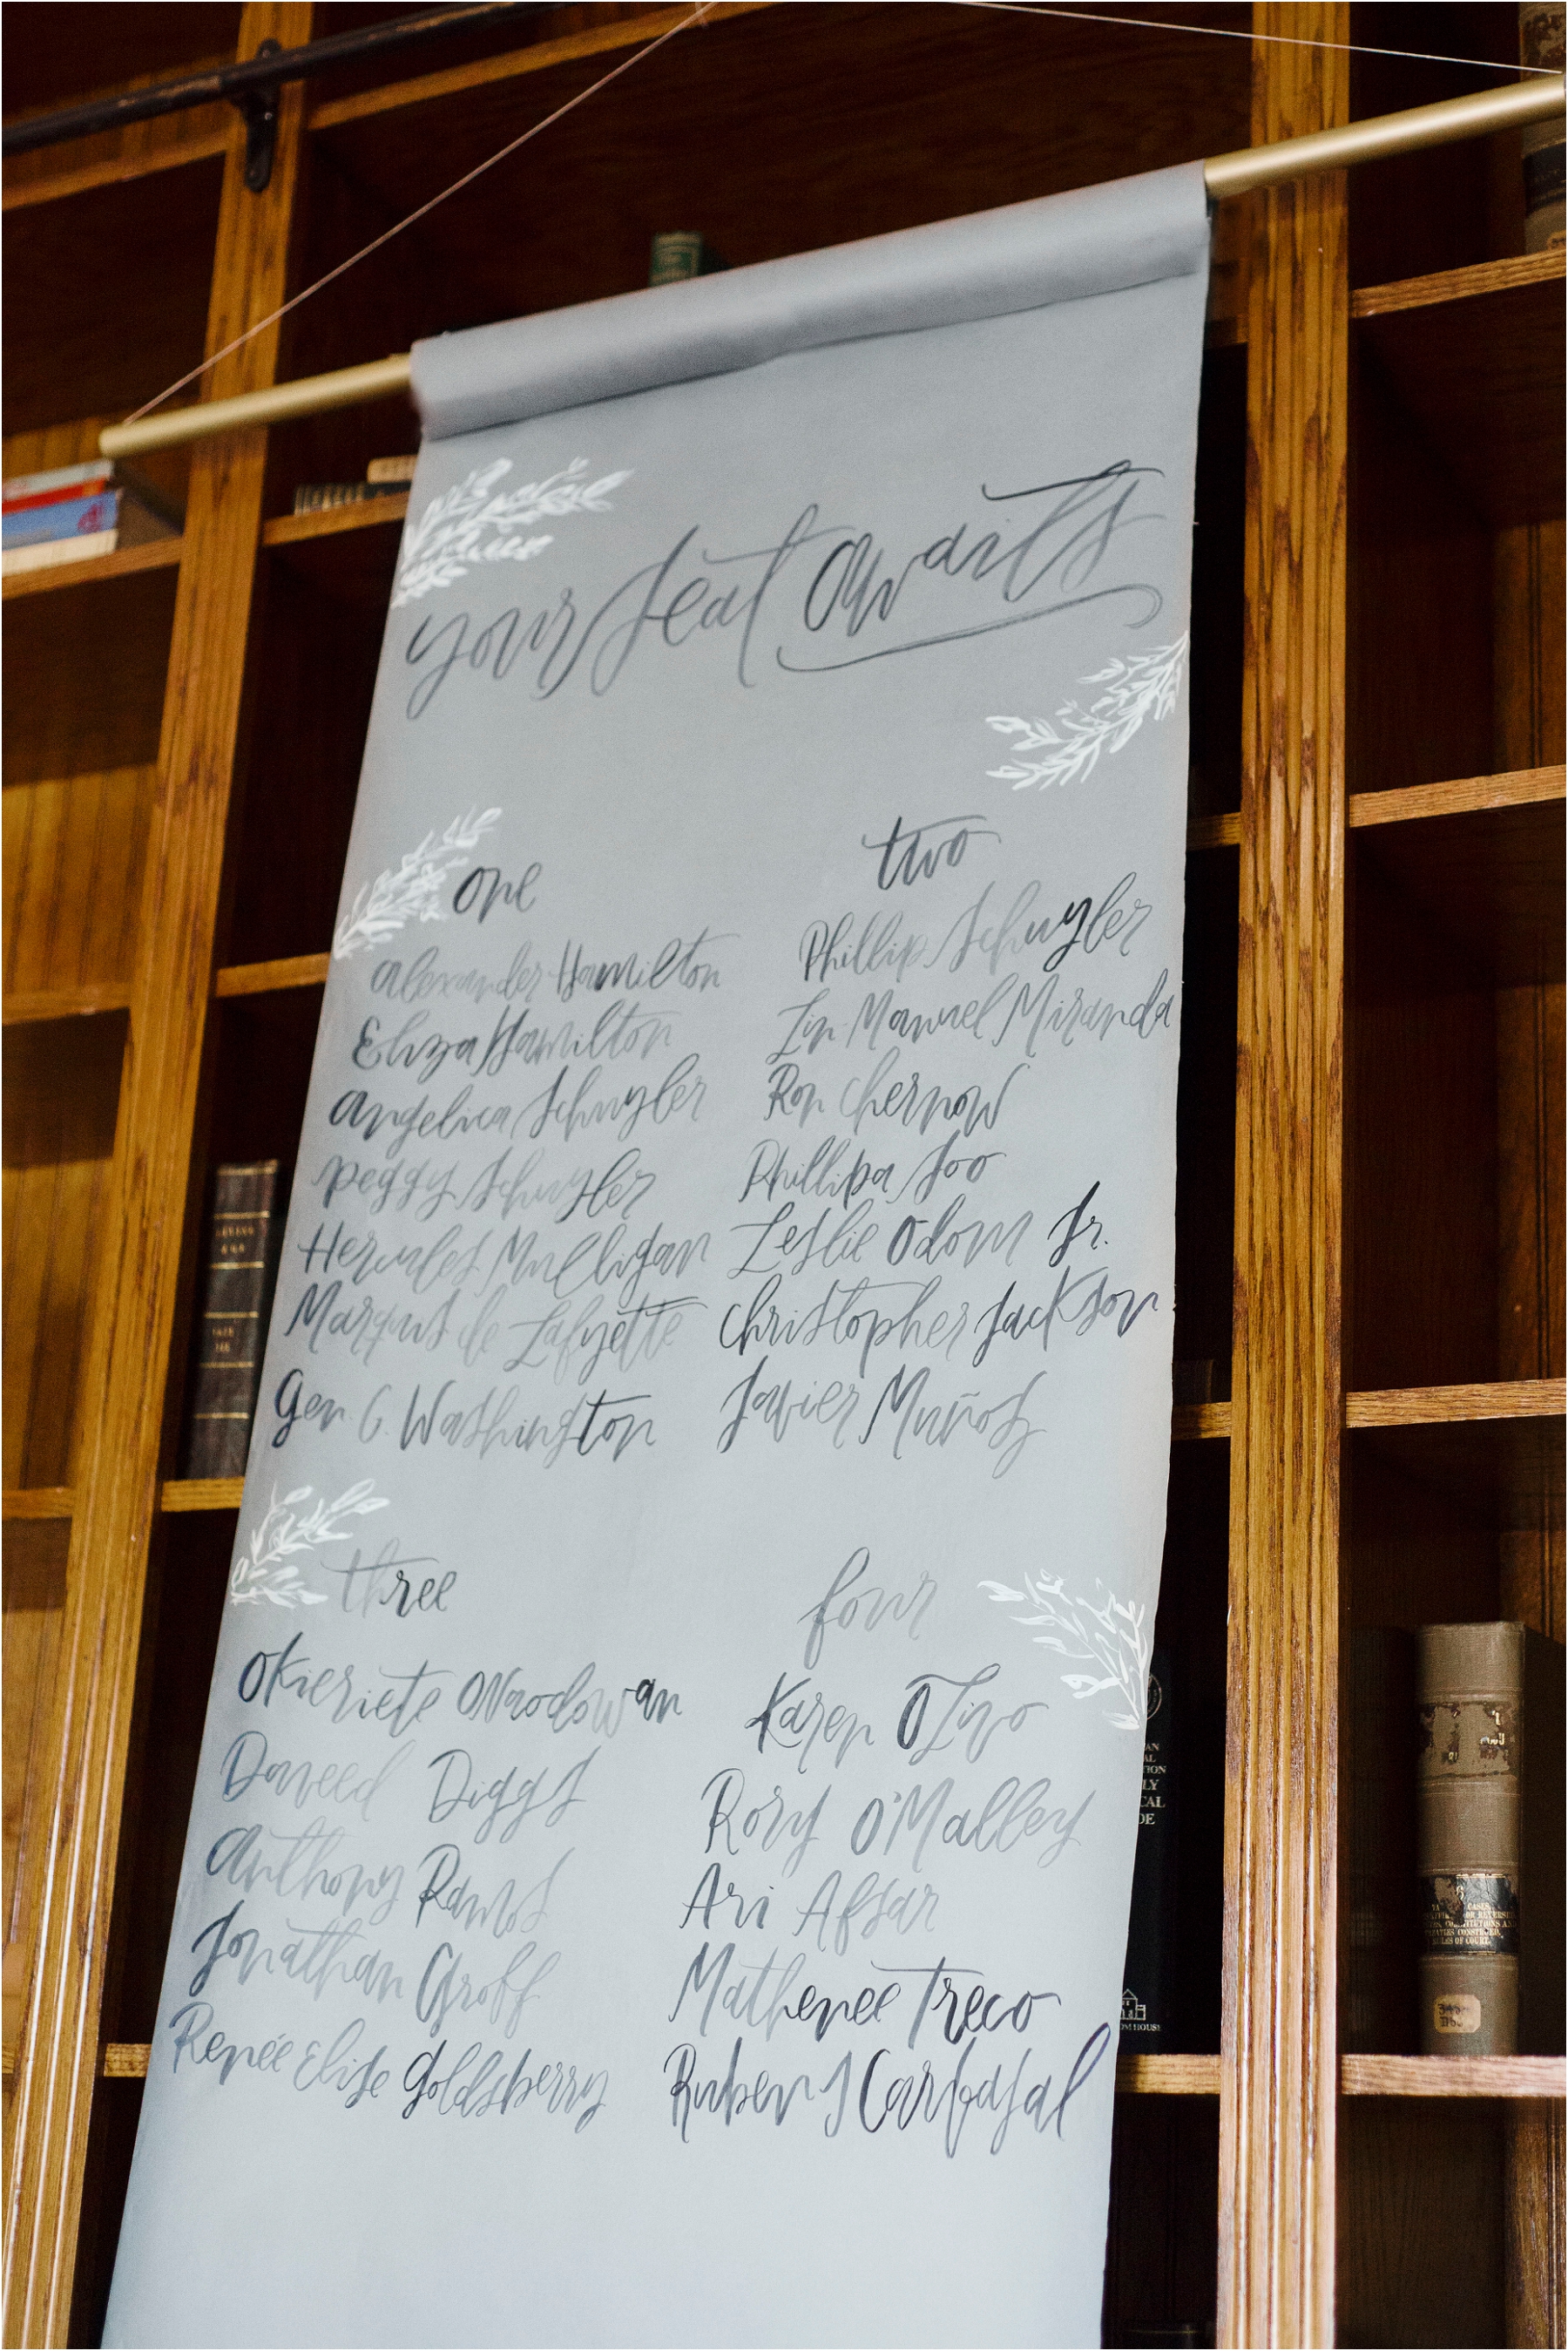 your seat awaits
one
Alexander Hamilton
Eliza Hamilton
Angelica Schuyler
Peggy Schuyler
Hercules Mulligan
Marquis de Lafyette
Gen. G. Washington
two
Phillip Schuyler
Lin Manuel Miranda
Ron Chernow
Phillipa Soo
Leslie Odom Jr.
Christopher Jackson
Javier Muñoz
three
Okieriete Onaodowan
Daveed Diggs
Anthony Ramos
Jonathan Groff
Renée Elise Goldsberry
four
Karen Olivo
Rory O'Malley
Ari Afsar
Mathenee Treco
Ruben J Carbajal